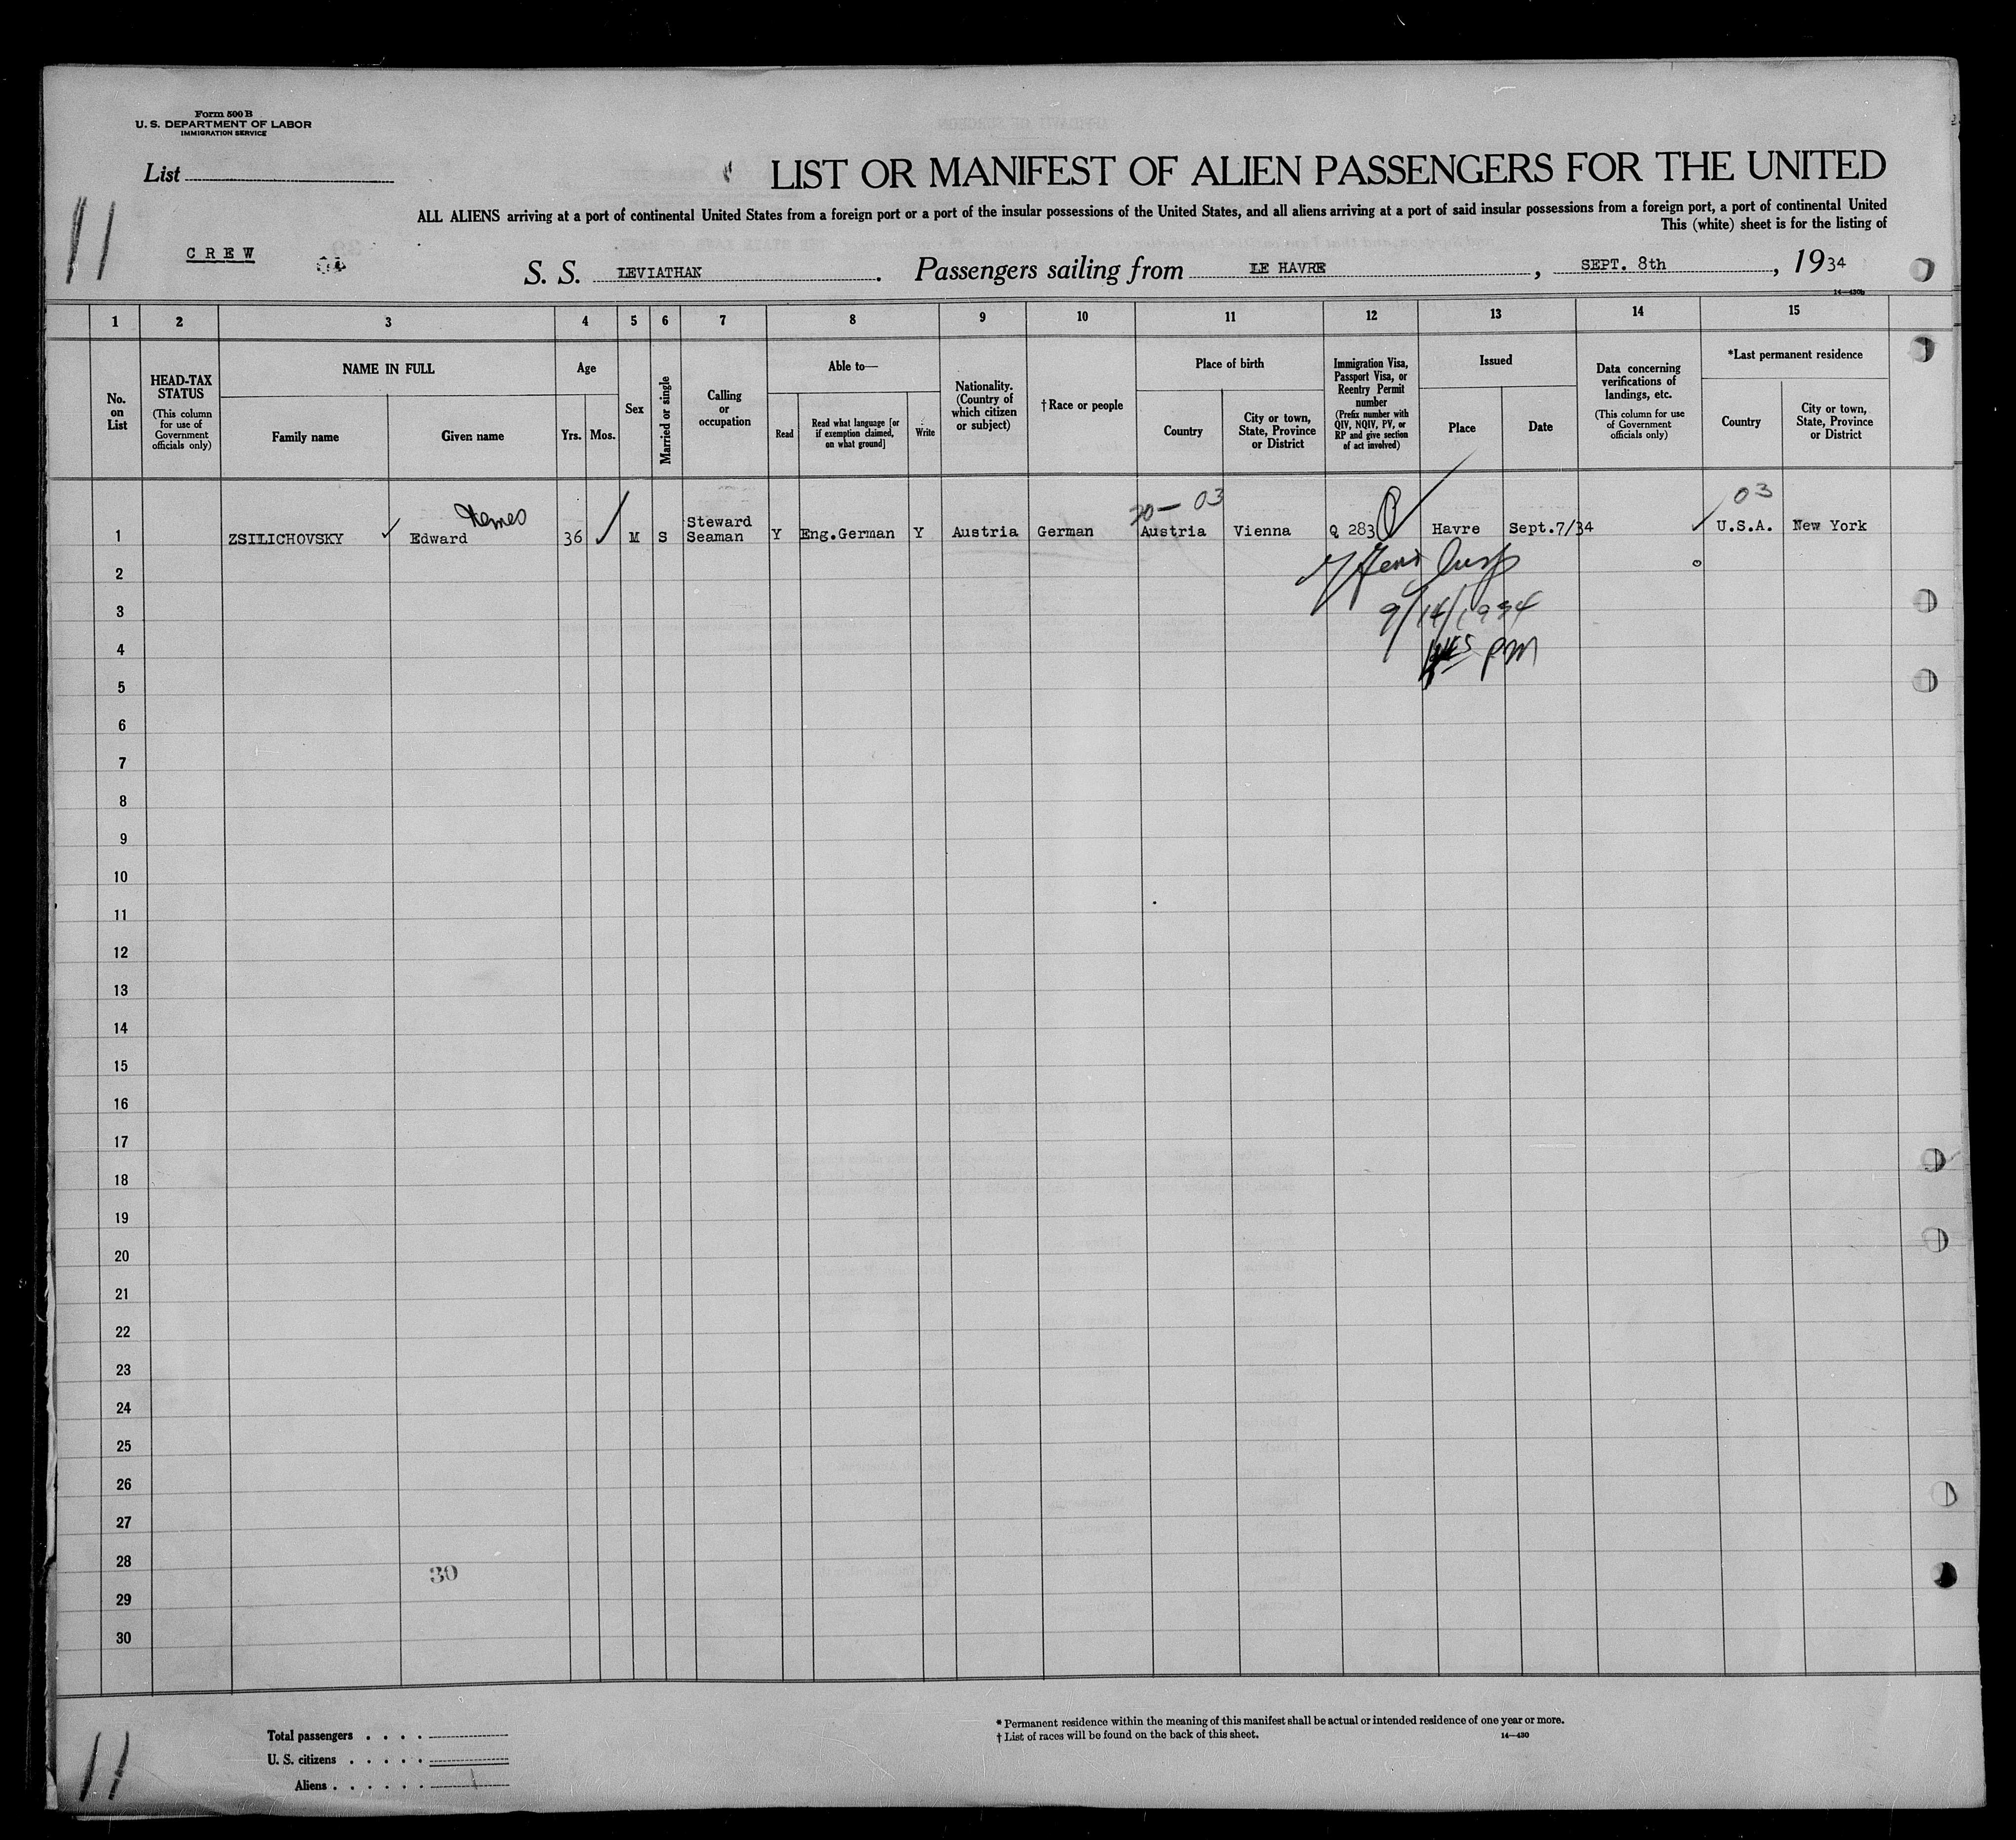 Form 500 B
U. S. DEPARTMENT OF LABOR
IMMIGRATION SERVICE
List
LIST OR MANIFEST OF ALIEN PASSENGERS FOR THE UNITED
11
ALL ALIENS arriving at a port of continental United States from a foreign port or a port of the insular possessions of the United States, and all aliens arriving at a port of said insular possessions from a foreign port, a port of continental United
This (white) sheet is for the listing of
CREW
S. S. LEVIATHAN. Passengers sailing from LE HAVRE, SEPT. 8th, 1934
14—430b
1 2 3 4 5 6 7 8 9 10 11 12 13 14 15
No. on List
HEAD-TAX STATUS
(This column for use of Government officials only)
NAME IN FULL
Family name
Given name
Age
Yrs.
Mos.
Sex
Married or single
Calling or occupation
Able to—
Read
Read what language [or if exemption claimed, on what ground]
Write
Nationality. (Country of which citizen or subject)
† Race or people
Place of birth
Country
City or town, State, Province or District
Immigration Visa, Passport Visa, or Reentry Permit number
(Prefix number with QIV, NQIV, PV, or RP and give section of act involved)
Issued
Place
Date
Data concerning verifications of landings, etc.
(This column for use of Government officials only)
*Last permanent residence
Country
City or town, State, Province or District
20— 03
03
1 ZSILICHOVSKY Edward 36 M S Steward Seaman Y Eng.German Y Austria German Austria Vienna Q 283 Havre Sept.7/34 U.S.A. New York
2
9/14/1934
3
PM
4
5
6
7
8
9
10
11
12
13
14
15
16
17
18
19
20
21
22
23
24
25
26
27
28
30
29
30
Total passengers
U. S. citizens
Aliens 1
11
* Permanent residence within the meaning of this manifest shall be actual or intended residence of one year or more.
† List of races will be found on the back of this sheet.
14—430